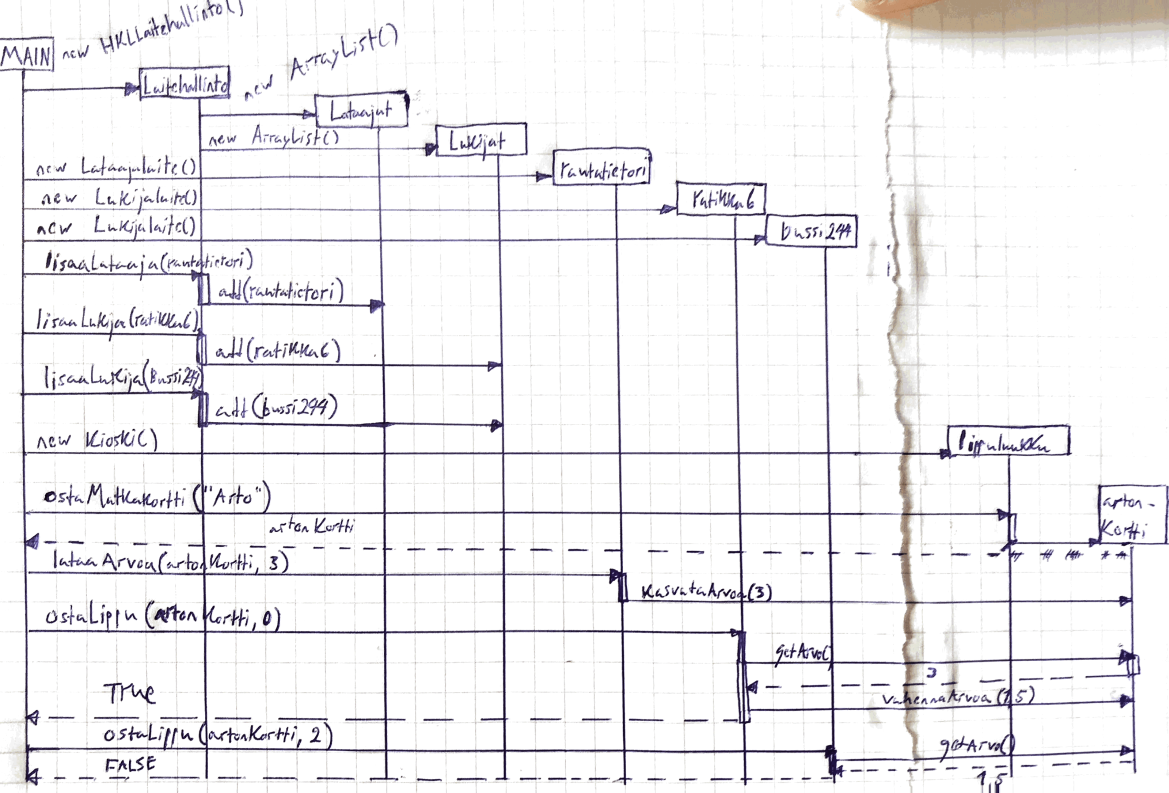 MAIN
new HKLLaitehallinto()
Laitehallinto
new ArrayList()
Lataajat
new ArrayList()
Lukijat
new Lataajalaite()
rautatietori
new Lukijalaite()
ratikka6
new Lukijalaite()
bussi244
lisaaLataaja(rautatietori)
add(rautatietori)
lisaaLukija(ratikka6)
add(ratikka6)
lisaaLukija(Bussi244)
add(bussi244)
new Kioski()
lippuluukku
ostaMatkakortti("Arto")
arton-
Kortti
artonKortti
lataaArvoa(artonKortti, 3)
kasvataArvoa(3)
ostaLippu(artonKortti, 0)
getArvo()
3
vahennaArvoa(1,5)
True
ostaLippu(artonKortti, 2)
getArvo()
FALSE
1,5